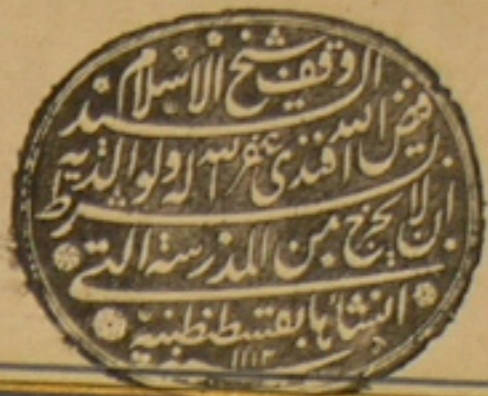 وقف شيخ الاسلام
السيد
فيض الله افندى غفر الله له ولوالديه
بشرط
ان لا يخرج من المدرسة التى
انشاها بقسطنطنية
١١١٣